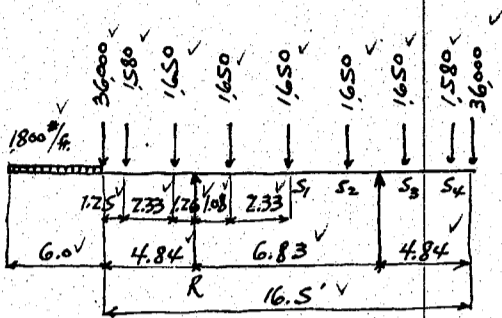 36,000 1,580 1,650 1,650 1,650 1,650 1,650 1,580 36,000
1,800 #/ft.
S1 S2 S3 S4
1.25' 2.33 1.26 1.08 2.33
6.0 4.84 6.83 4.84
R
16.5'